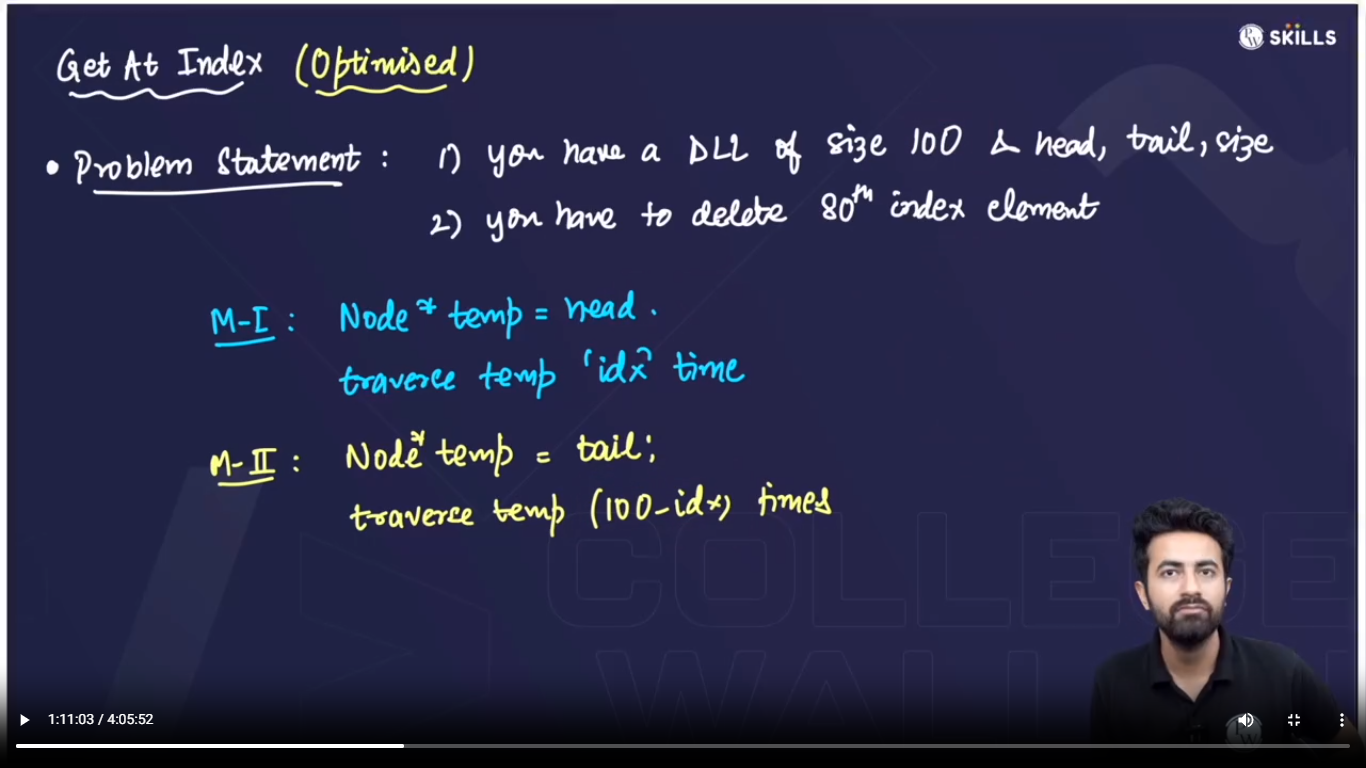 Get At Index (Optimised)
PW SKILLS
• Problem Statement : 1) you have a DLL of size 100 & head, tail, size
2) you have to delete 80th index element
M-I : Node* temp = head.
traverse temp 'idx' time
M-II : Node* temp = tail;
traverse temp (100-idx) times
COLLEGE
WALL
1:11:03 / 4:05:52